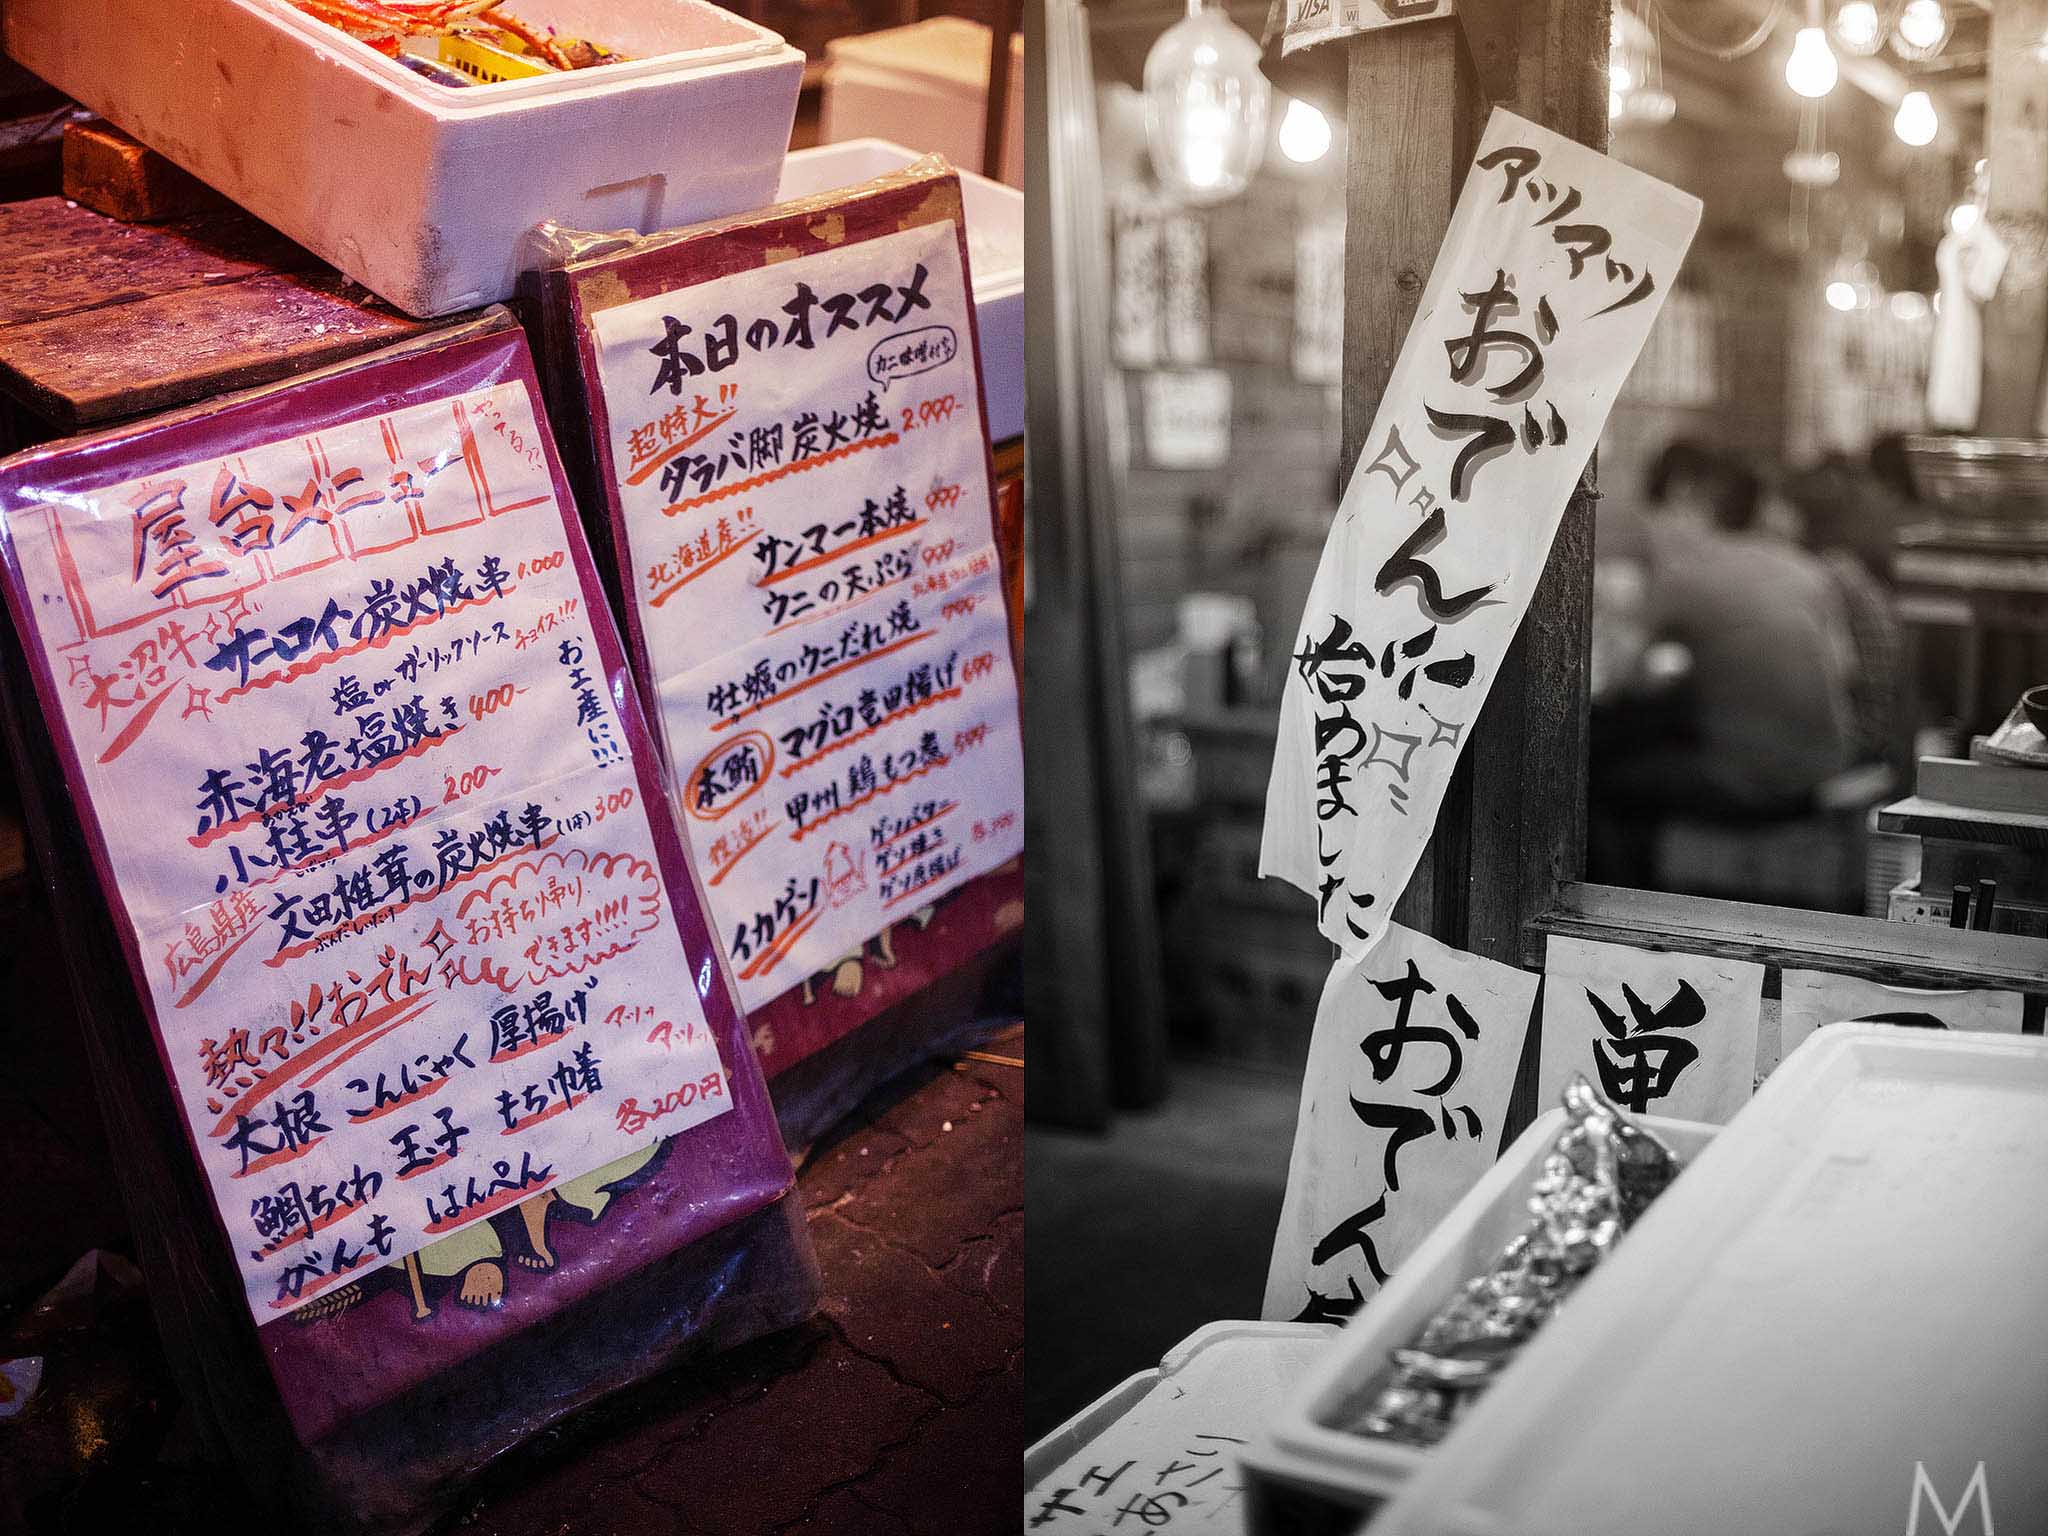 屋台メニュー
やってる??
大沼牛
サーロイン炭火焼串 1.000
塩orガーリックソース
チョイス!!!
赤海老塩焼き 400-
お土産に!!!
小柱串(2本) 200-
広島県産
文田椎茸の炭火焼串(1本) 300
ぶんだしいたけ
熱々!!おでん
お持ち帰り
できます!!!!
大根 こんにゃく 厚揚げ
アツッ
アツッ
鯛ちくわ 玉子 もち巾着
各200円
がんも はんぺん
本日のオススメ
カニ味噌付き
超特大!!
タラバ脚炭火焼 2.999-
北海道産!!
サンマ一本焼 999-
ウニの天ぷら 999-
牡蠣のウニだれ焼 799-
本鮪
マグロ竜田揚げ 699-
甲州鶏もつ煮 599-
イカゲソ
ゲソバター
ゲソ焼き
ゲソ唐揚げ
VISA
アツアツ
おでん
始めました
おでん
サエ
あさり
M